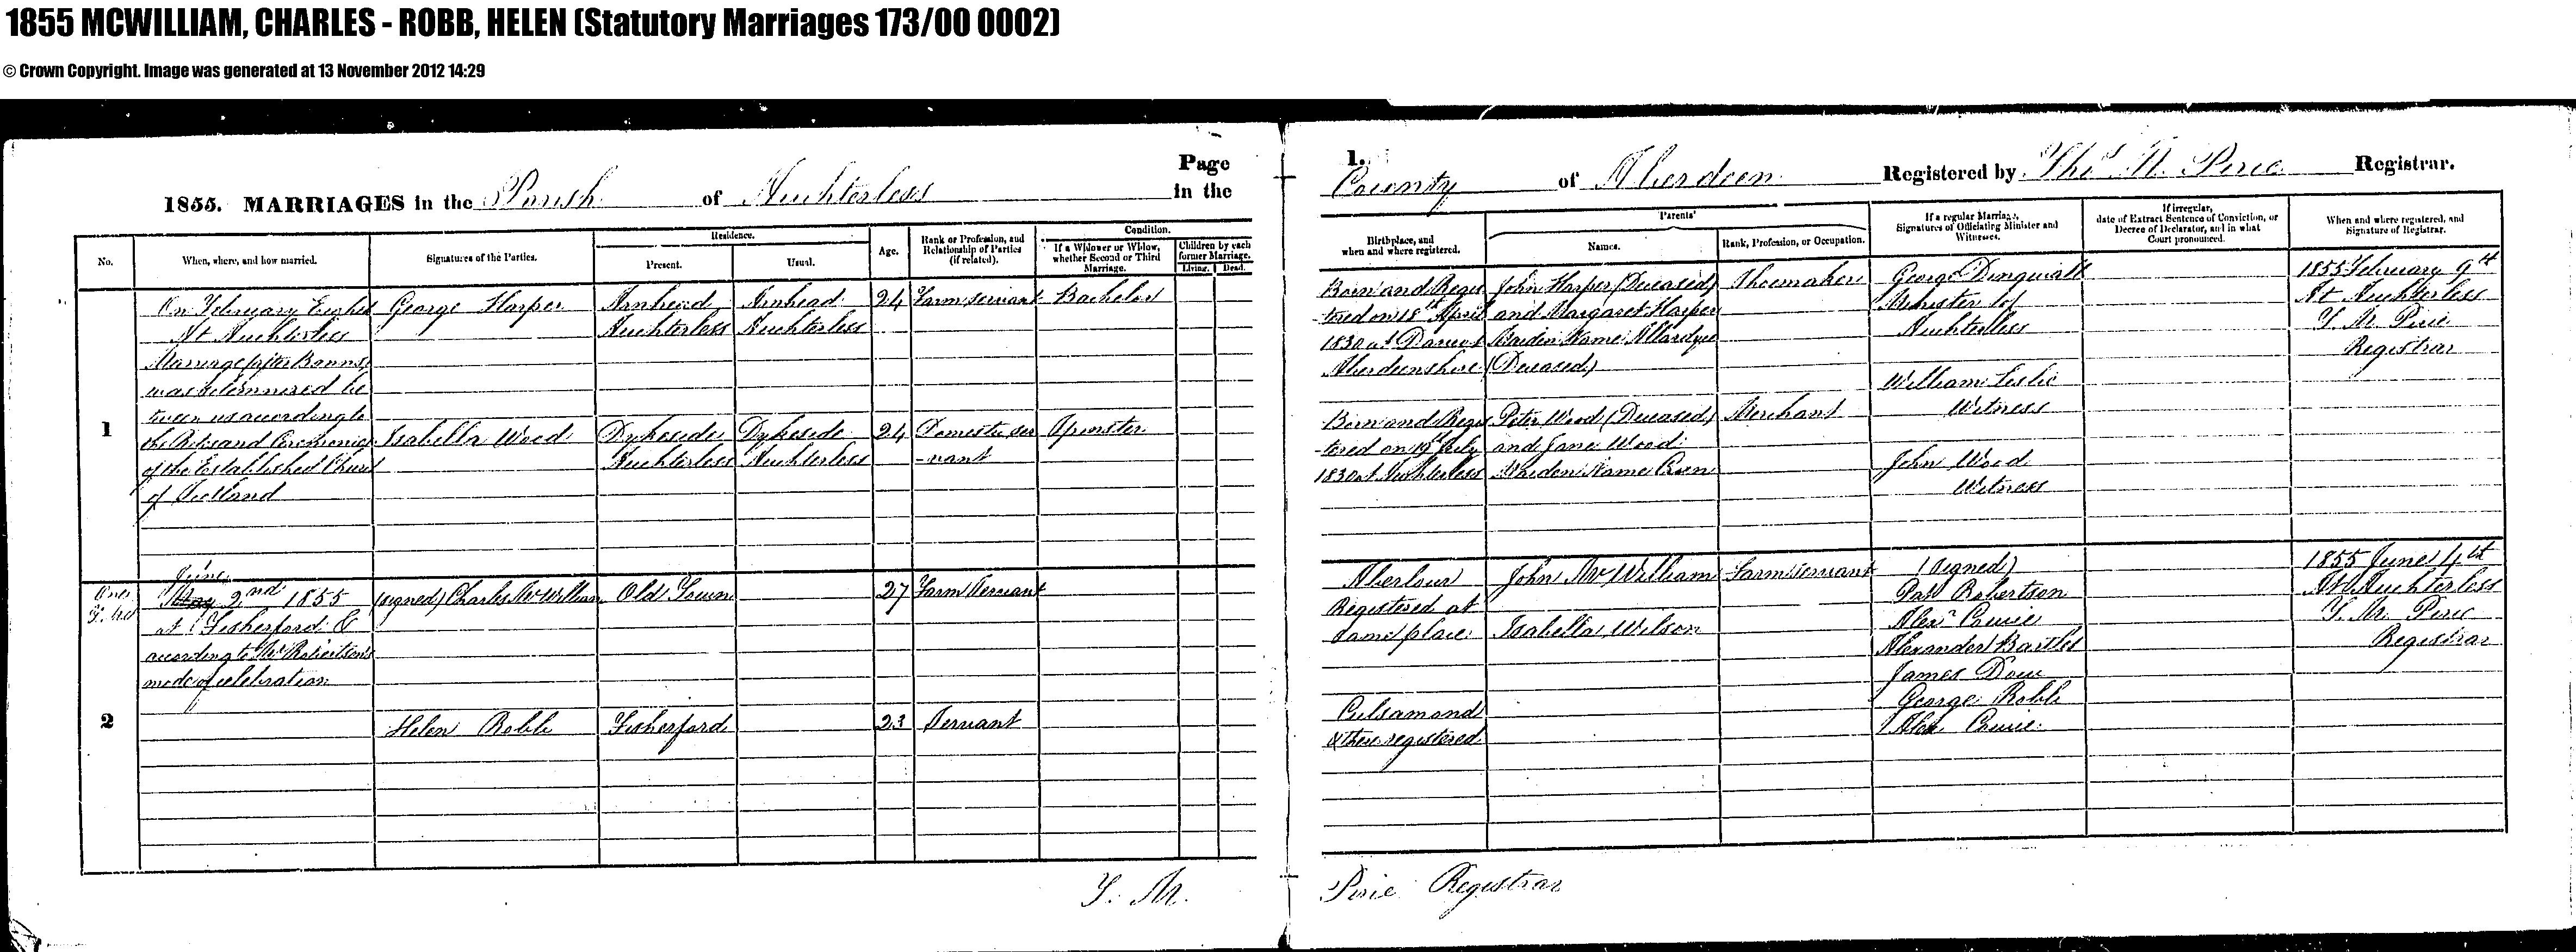 1855 MCWILLIAM, CHARLES - ROBB, HELEN (Statutory Marriages 173/00 0002)
© Crown Copyright. Image was generated at 13 November 2012 14:29
Page 1.
1855. MARRIAGES in the Parish of Auchterless in the County of Aberdeen Registered by Thos M. Pirie Registrar.
No.
When, where, and how married.
Signatures of the Parties.
Residence.
Present.
Usual.
Age.
Rank or Profession, and
Relationship of Parties
(if related).
Condition.
If a Widower or Widow,
whether Second or Third
Marriage.
Children by each
former Marriage.
Living.
Dead.
Birthplace, and
when and where registered.
Parents'
Names.
Rank, Profession, or Occupation.
If a regular Marriage,
Signatures of Officiating Minister and
Witnesses.
If irregular,
date of Extract Sentence of Conviction, or
Decree of Declarator, and in what
Court pronounced.
When and where registered, and
Signature of Registrar.
1
On February Eighth
At Auchterless
Marriage (after Banns)
was solemnized be
tween us according to
the Rites and Ceremonies
of the Established Church
of Scotland
George Harper
Arnhead
Auchterless
Arnhead
Auchterless
24
Farm servant
Bachelor
Isabella Wood
Dykeside
Auchterless
Dykeside
Auchterless
24
Domestic ser
-vant
Spinster
Born and Regis
-tered on 18th April
1830 at
Aberdeenshire
John Harper (Deceased)
and Margaret Harper
Maiden Name Allardyce
(Deceased)
Shoemaker
Born and Regis
-tered on 19th July
1830 at Auchterless
Peter Wood (Deceased)
and Jane Wood
Maiden Name
Merchant
George Dingwall
Minister of
Auchterless
William Leslie
Witness
John Wood
Witness
1855 February 9th
At Auchterless
T. M. Pirie
Registrar
2
June
May 2nd 1855
at Fisherford &
according to Mr Robertson's
mode of celebration
(signed) Charles McWilliam
Old Town
27
Farm Servant
Helen Robb
Fisherford
23
Servant
Aberlour
Registered at
same place
John McWilliam
Isabella Wilson
Farm servant
Culsamond
& there registered
(signed)
Robertson
Alexr Cruie
Alexander
James Dow
George Robb
Alex Cruie
1855 June 4th
At Auchterless
T. M. Pirie
Registrar
T. M. Pirie Registrar